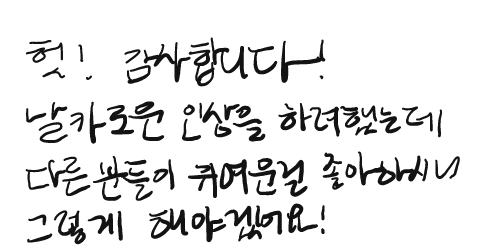 헛! 감사합니다!
날카로운 인상을 하려했는데
다른 분들이 귀여운걸 좋아하시니
그렇게 해야겠어요!